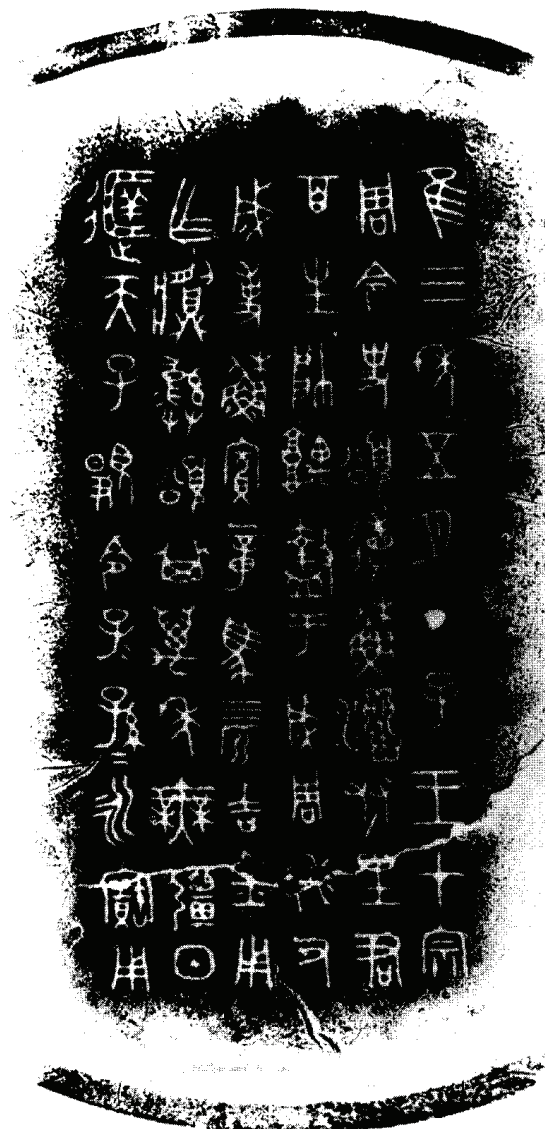 隹三年五月丁子王才宗
周令史頌省穌𤔲友里君
百生帥堣盩于成周休又
成事穌賓章馬四匹吉金用
乍䵼彝頌其萬年無疆日
𨒙天子䫉令子孫=永寶用